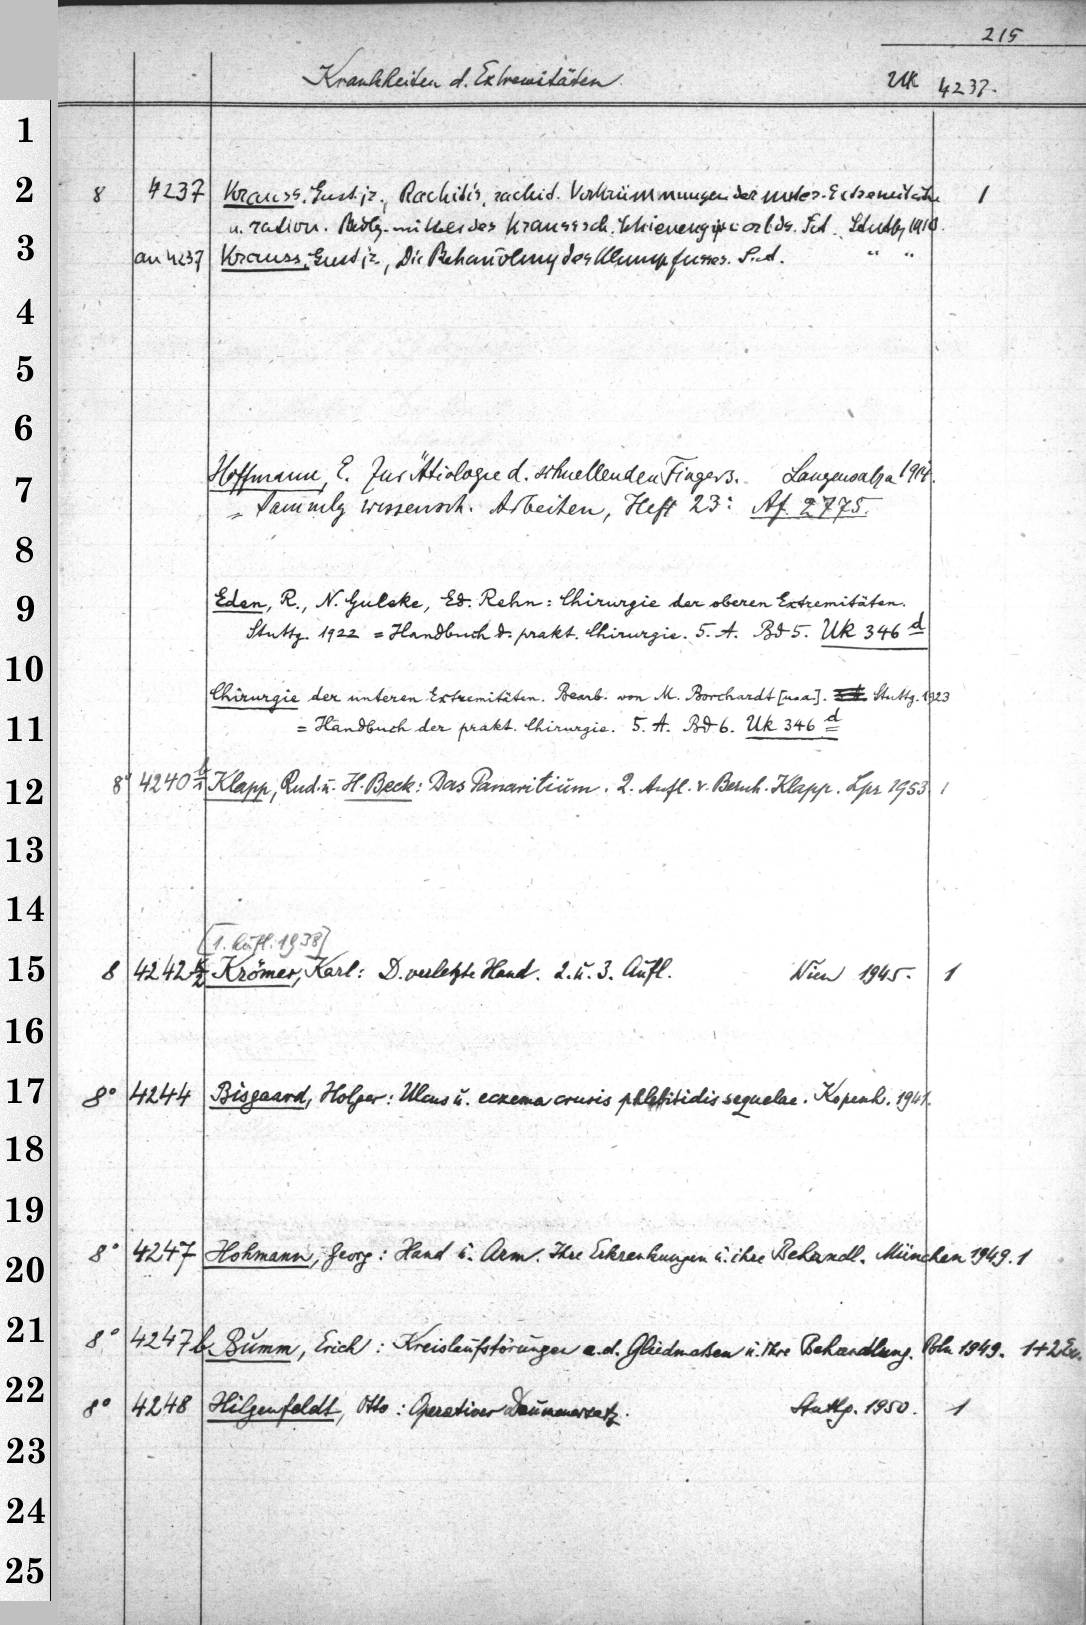 215
Krankheiten d. Extremitäten. Uk 4237.
1
2 8 4237 Krauss, Gust. jr., Rachitis, rachid. Verkrümmungen der unter. Extremitäten 1
u. ration. mittels des Krauss'sch. Stuttg 1910.
3 an 4237 Krauss, Gust. jr., Die Behandlung des Klumpfusses. S.d. " "
4
5
6
7 Hoffmann, E. Zur Ätiologie d. schnellenden Fingers. Langensalza 1914.
= Sammlg wissensch. Arbeiten, Heft 23: Af. 2775.
8
9 Eden, R., N. Guleke, Ed. Rehn: Chirurgie der oberen Extremitäten.
Stuttg. 1922 = Handbuch d. prakt. Chirurgie. 5. A. Bd 5. Uk 346 d
10
Chirurgie der unteren Extremitäten. Bearb. von M. Borchardt [u.a.]. Stuttg. 1923
11 = Handbuch der prakt. Chirurgie. 5. A. Bd 6. Uk 346 d
12 8° 4240 b Klapp, Rud. u. H. Beck: Das Panaritium. 2. Aufl. v. Bernh. Klapp. Lpz 1953 1
13
14
[1. Aufl. 1938]
15 8 4242 Krömer, Karl: D. verletzte Hand. 2. u. 3. Aufl. Wien 1945. 1
16
17 8° 4244 Bisgaard, Holger: Ulcus u. eczema cruris phlebitidis sequelae. Kopenh. 1941.
18
19
20 8° 4247 Hohmann, Georg: Hand u. Arm. Ihre Erkrankungen u. ihre Behandl. München 1949. 1
21 8° 4247 b Bumm, Erich: Kreislaufstörungen a.d. Gliedmaßen u. ihre Behandlung. Bln 1949. 1+2 Ex.
22 8° 4248 Hilgenfeldt, Otto: Operativer Daumenersatz. Stuttg. 1950. 1
23
24
25